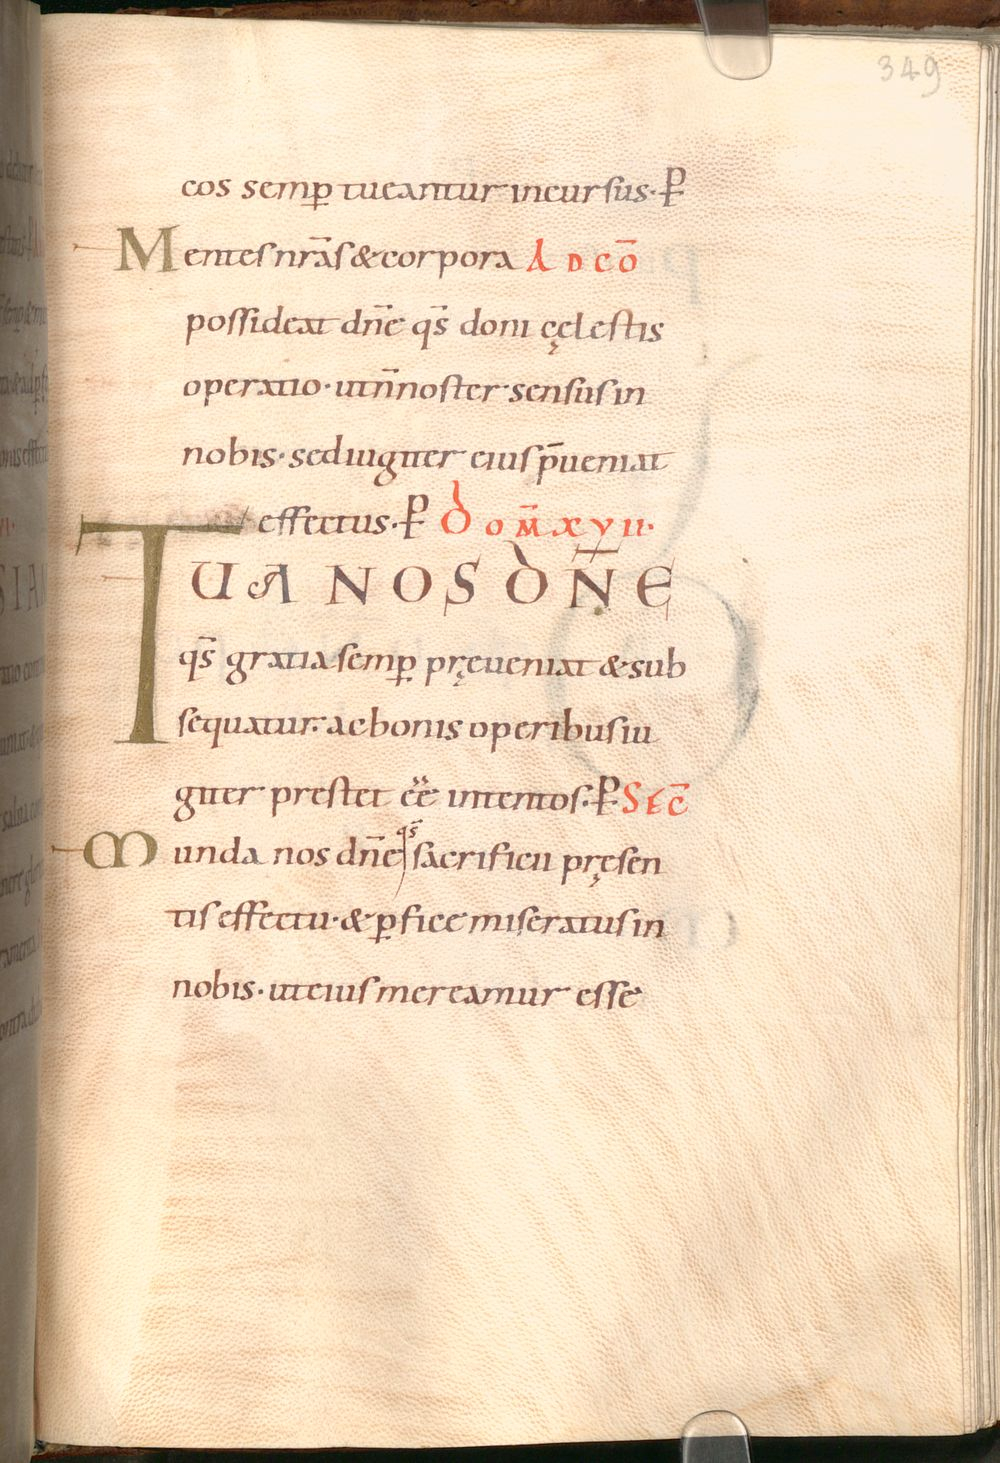 349
eos semꝑ tueantur incursus· P̄
Mentes nr̄as & corpora AD CŌ
possideat dn̄e qs̄ doni cęlestis
operatio· ut n̄ noster sensus in
nobis· sed iugiter eius p̄ueniat
effectus· P̄ DOM̄ XVII·
TUA NOS DN̄E
qs̄ gratia semꝑ pręueniat & sub
sequatur· ac bonis operibus iu
giter prestet ee̅ intentos· P̄ SEC̄
Munda nos dn̄e qs̄ sacrificii pręsen
tis effectu· & ꝑfice miseratus in
nobis· ut eius mereamur esse